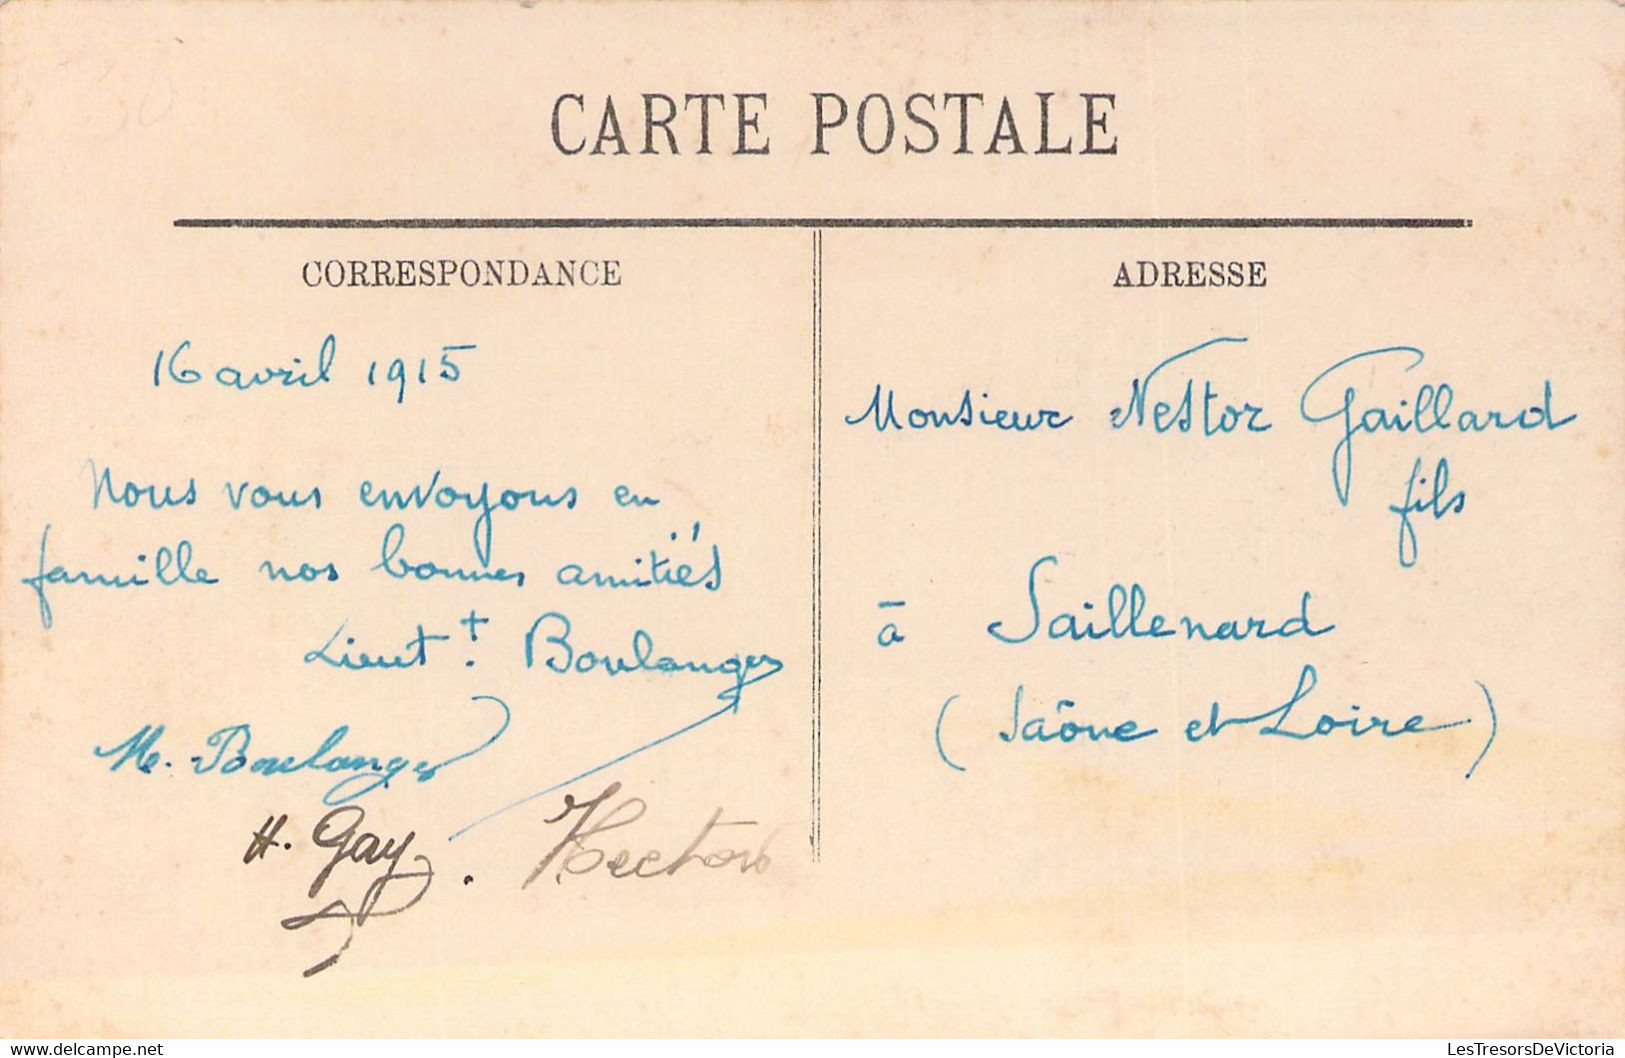 CARTE POSTALE
CORRESPONDANCE
16 avril 1915
Nous vous envoyons en
famille nos bonnes amitiés
Lieut.t Boulanger
M. Boulanger
H. Gay. Hector
ADRESSE
Monsieur Nestor Gaillard
fils
à Saillenard
(Saône et Loire)
LesTresorsDeVictoria